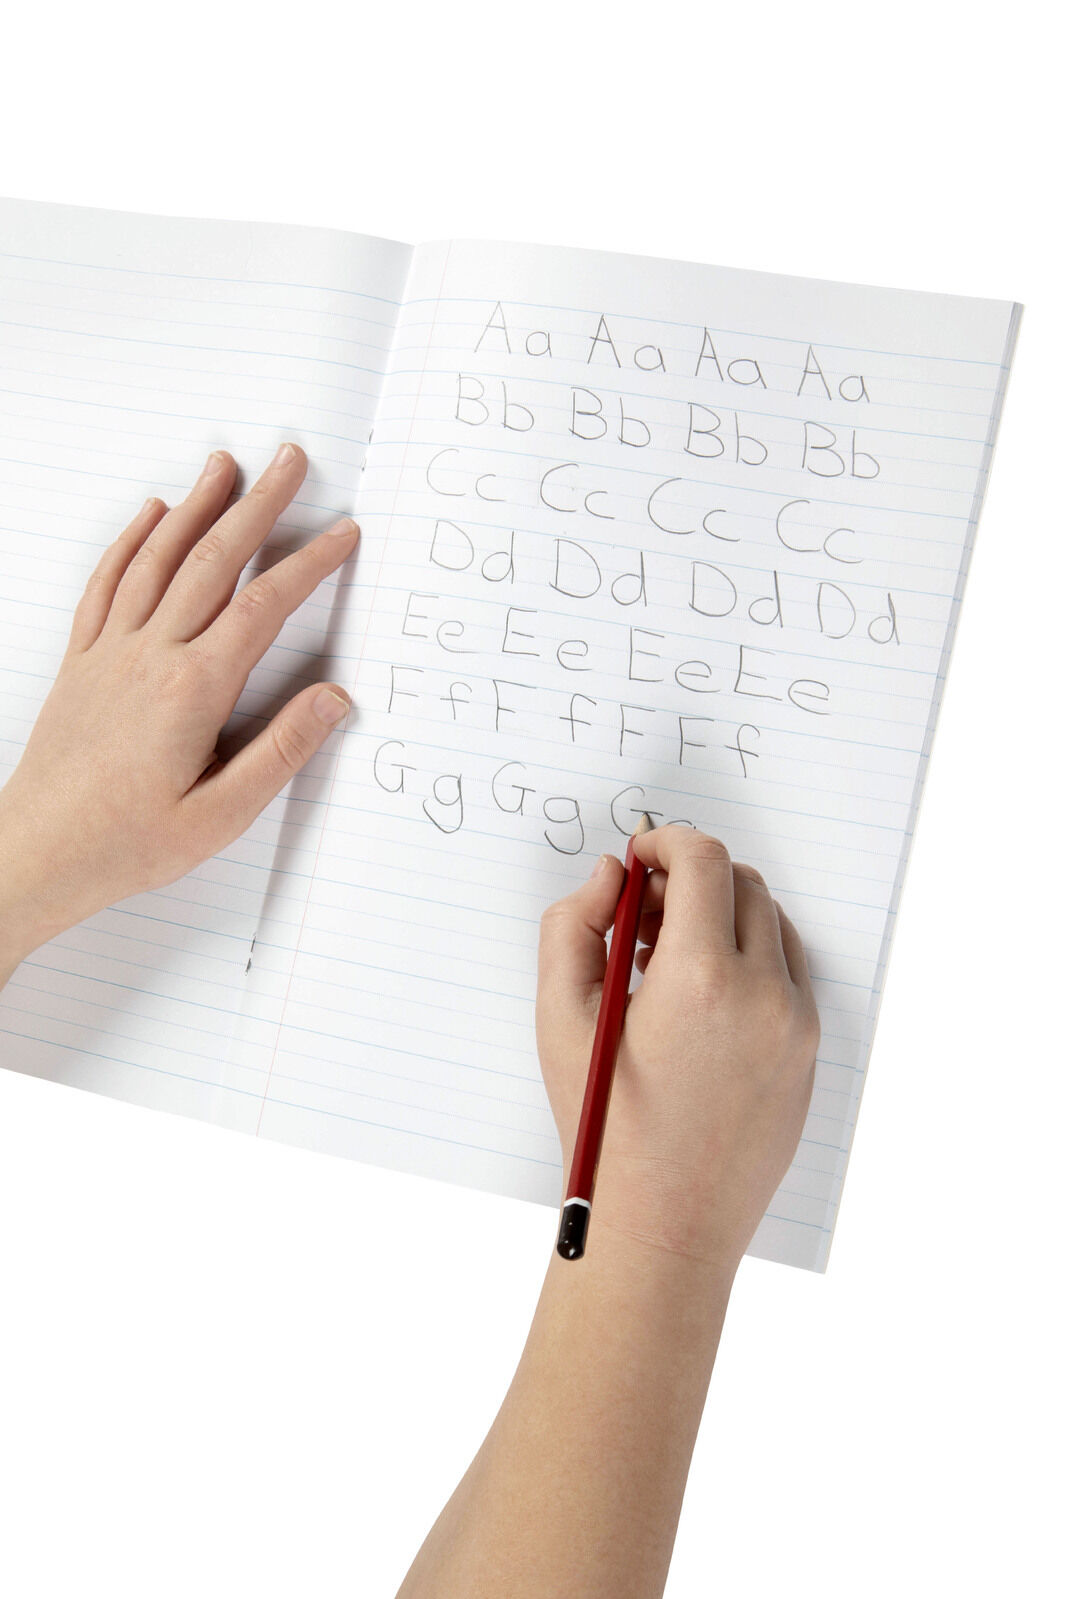 Aa Aa Aa Aa
Bb Bb Bb Bb
Cc Cc Cc Cc
Dd Dd Dd Dd
Ee Ee Ee Ee
Ff Ff F Ff
Gg Gg G